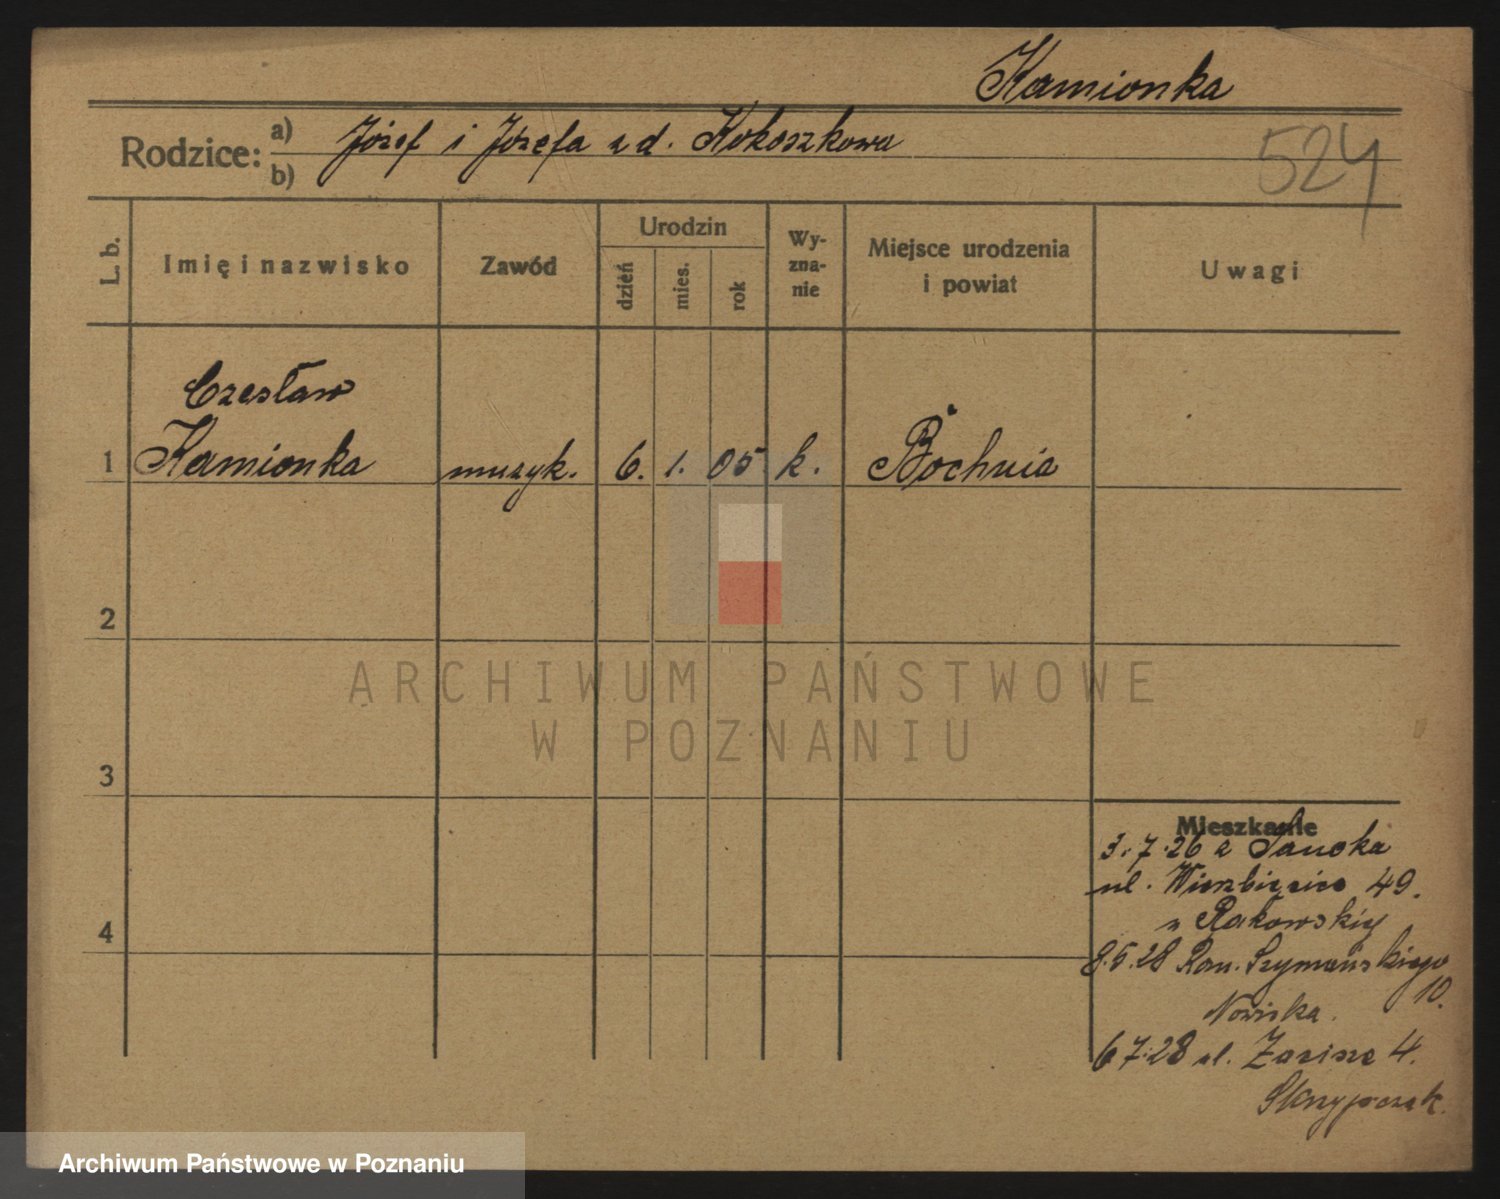 Kamionka
524
Rodzice: a) Józef i Józefa z d. Kokoszkowa
b)
L. b. Imię i nazwisko Zawód Urodzin dzień mies. rok Wyznanie Miejsce urodzenia i powiat Uwagi
Czesław
1 Kamionka muzyk. 6. 1. 05 k. Bochnia
2
ARCHIWUM PAŃSTWOWE
W POZNANIU
3
Mieszkanie
3.7.26 z Sanoka
ul. Wierzbięcice 49.
u Rakowskiej
4
8.5.28 Rom. Szymańskiego
10.
Nowiska.
6 7.28 ul. Zacisze 4.
Skrzypczak.
Archiwum Państwowe w Poznaniu